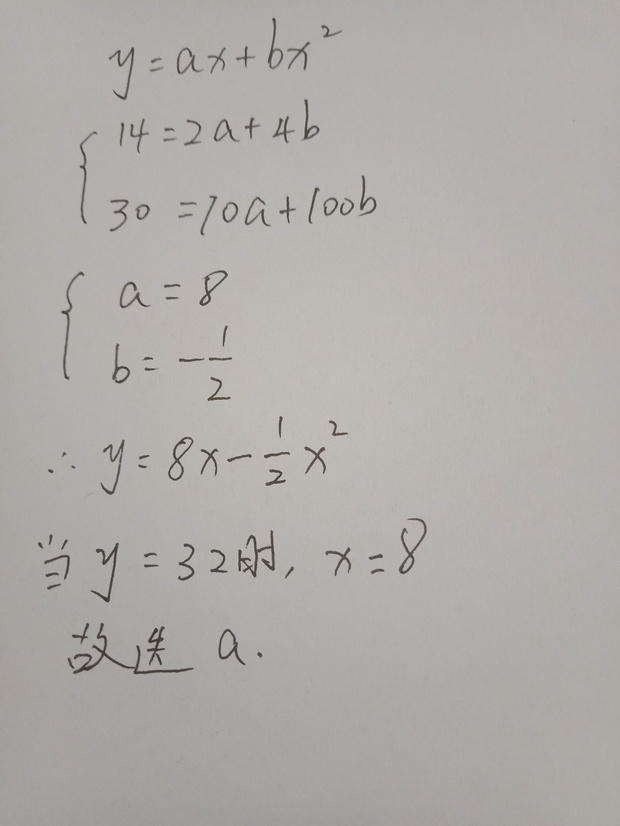 y=ax+bx²
14=2a+4b
30=10a+100b
a=8
b=-1/2
∴ y=8x-1/2x²
当y=32时, x=8
故选 a.